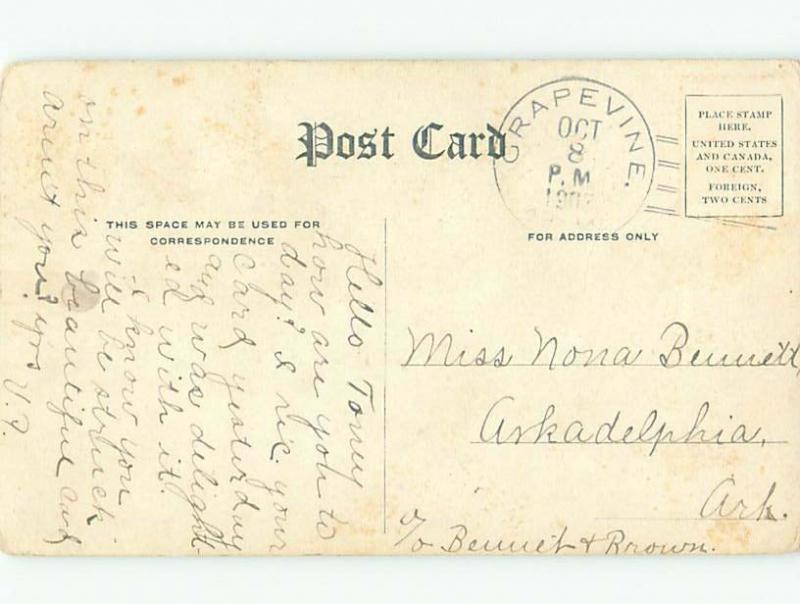 Post Card
GRAPEVINE.
OCT
8
P.M
190
PLACE STAMP
HERE.
UNITED STATES
AND CANADA,
ONE CENT.
FOREIGN,
TWO CENTS
THIS SPACE MAY BE USED FOR
CORRESPONDENCE
FOR ADDRESS ONLY
Hello Tomy
how are you to
day? I rec. your
card yesterday
and was delight-
ed with it.
I know you
will be struck
on this beautiful card
arent you? yrs V.P.
Miss Nona Bennett,
Arkadelphia,
Ark.
c/o Bennet & Brown.